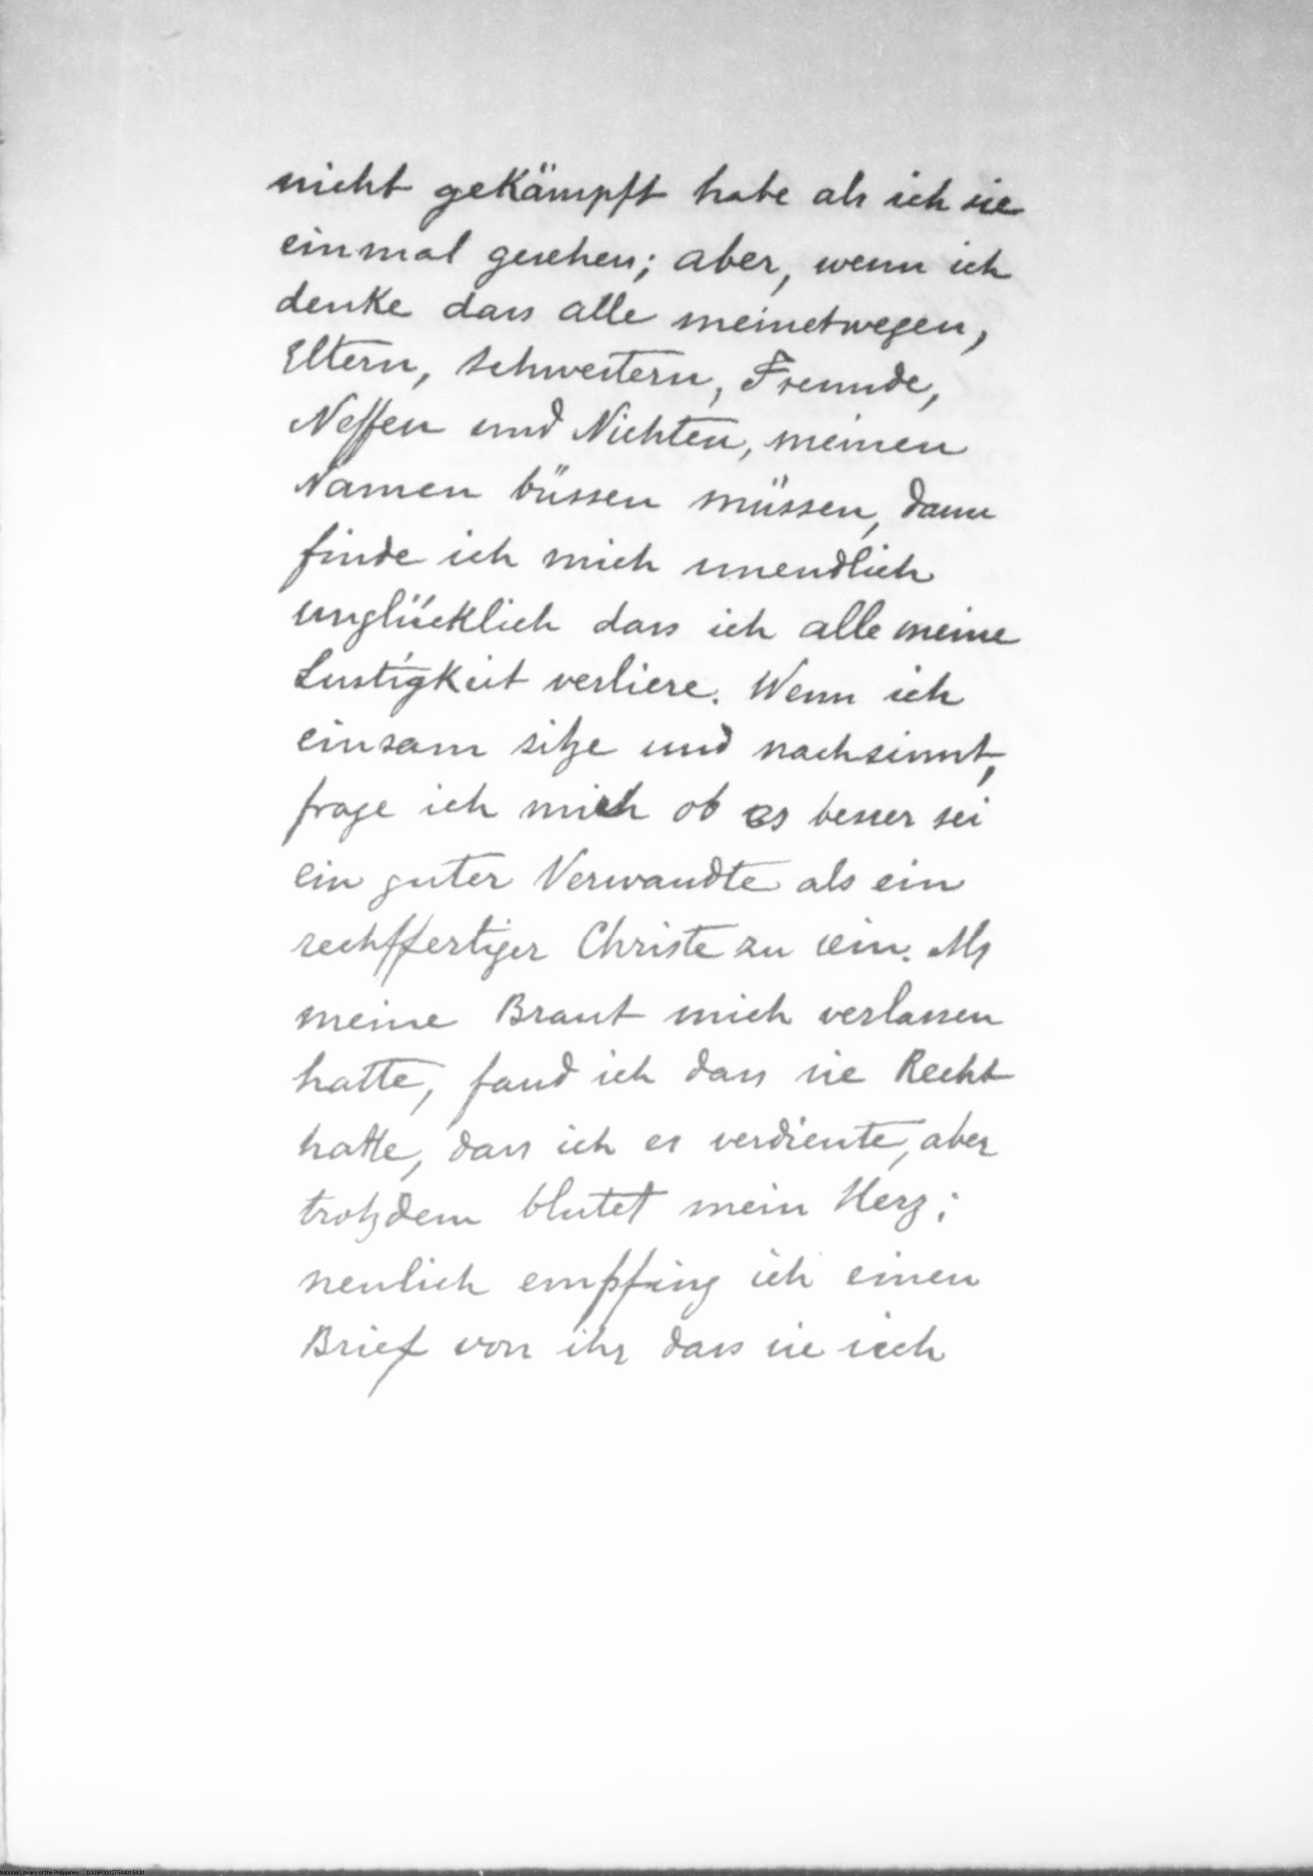 nicht gekämpft habe als ich sie
einmal gesehen; aber, wenn ich
denke dass alle meinetwegen,
Eltern, Schwestern, Freunde,
Neffen und Nichten, meinen
Namen büssen müssen, dann
finde ich mich unendlich
unglücklich dass ich alle meine
Lustigkeit verliere. Wenn ich
einsam sitze und nachsinnt,
frage ich mich ob es besser sei
ein guter Verwandte als ein
rechffertiger Christe zu sein. Als
meine Braut mich verlassen
hatte, fand ich dass sie Recht
hatte, dass ich es verdiente, aber
trotzdem blutet mein Herz;
neulich empfing ich einen
Brief von ihr dass sie sich